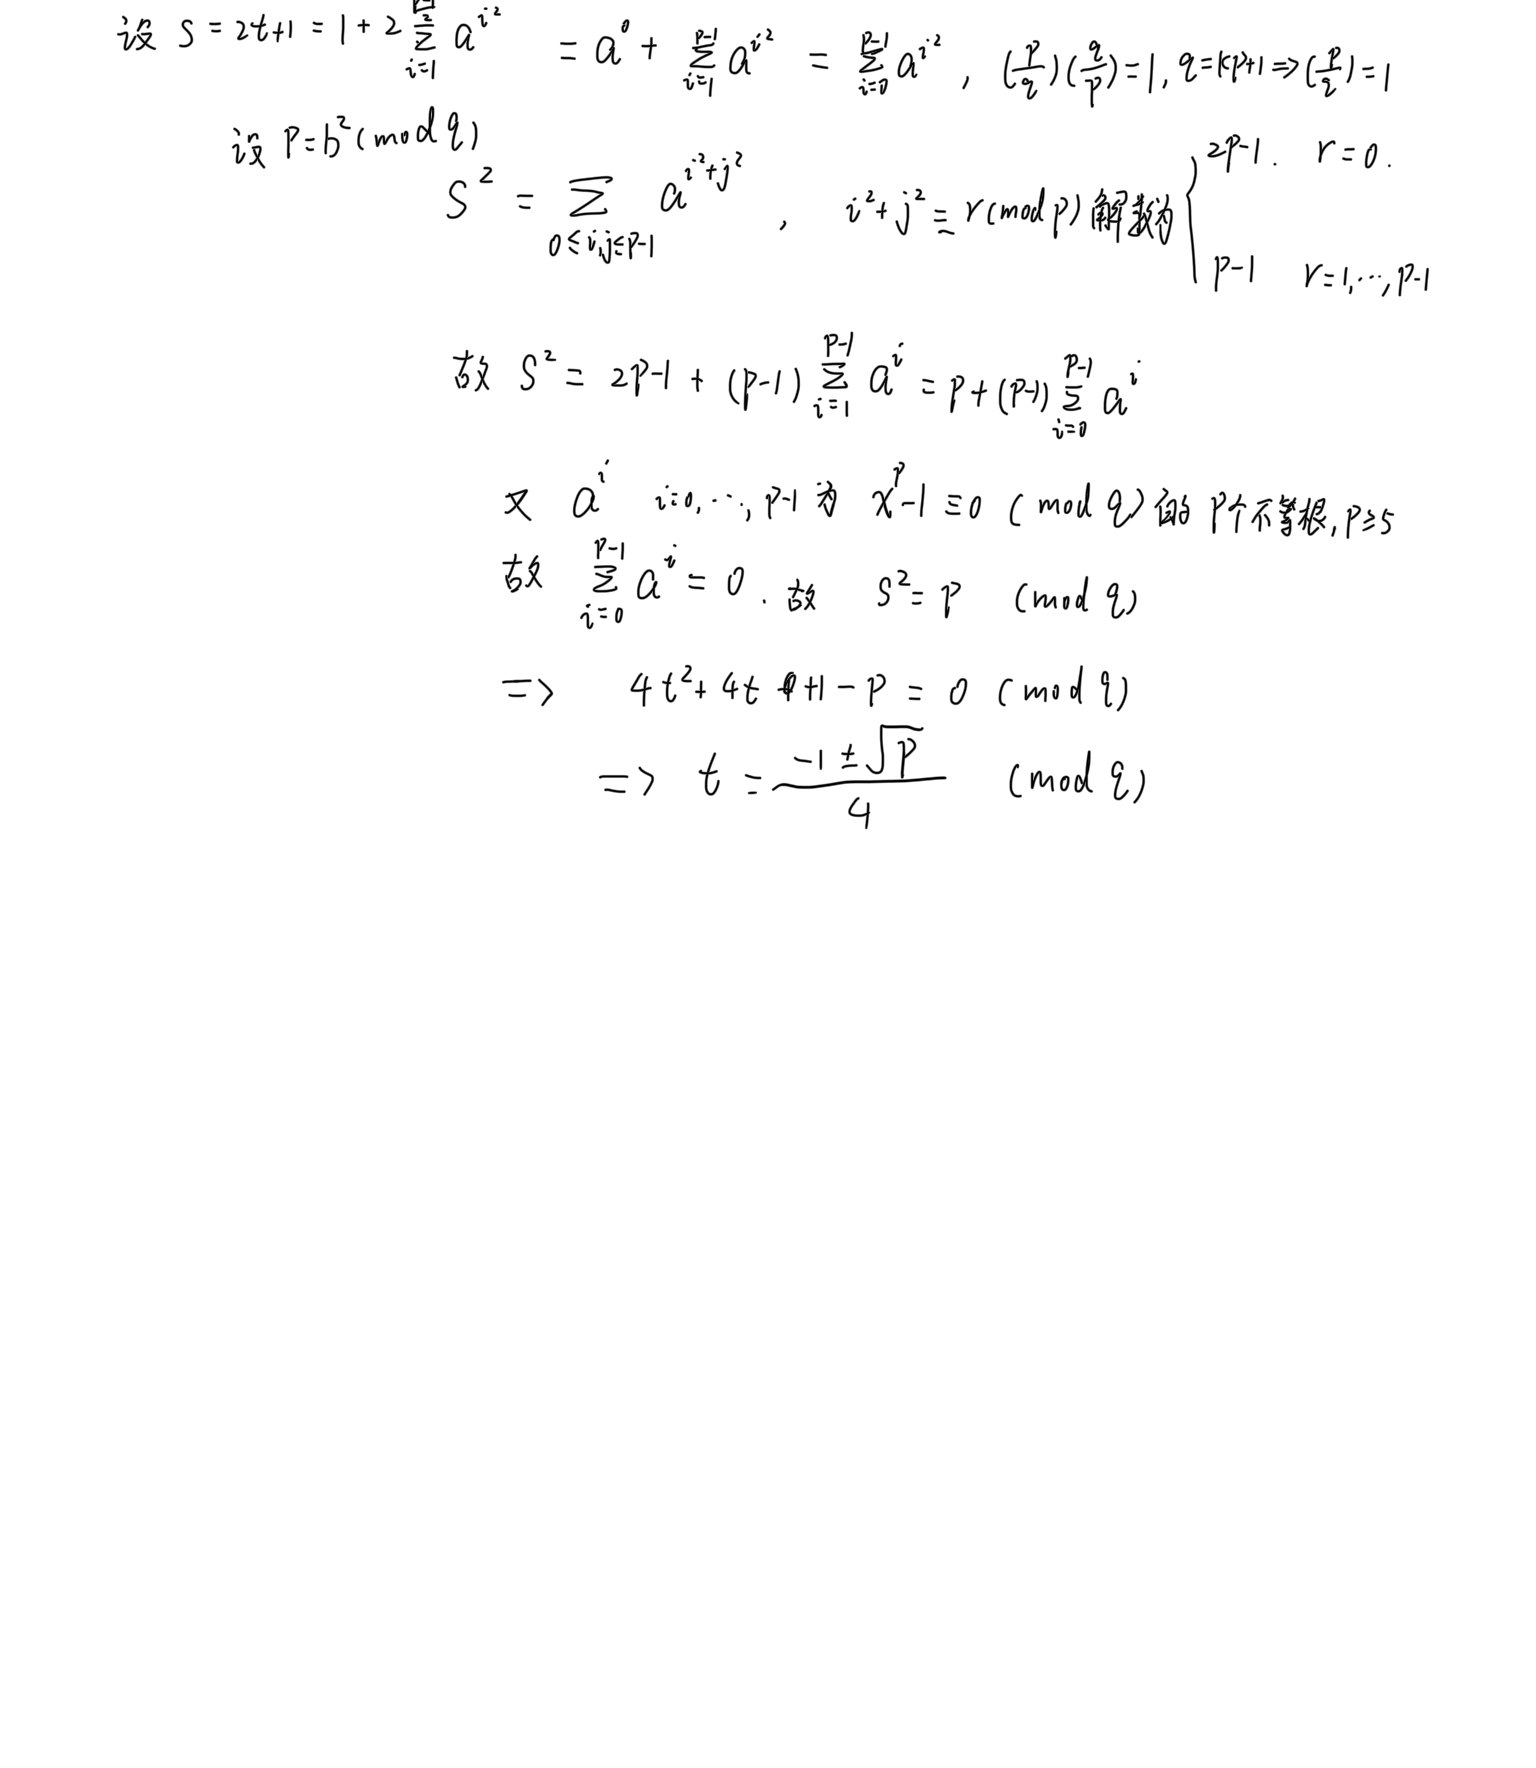 设 S = 2t+1 = 1 + 2 \sum_{i=1}^{\frac{p-1}{2}} a^{i^2} = a^0 + \sum_{i=1}^{p-1} a^{i^2} = \sum_{i=0}^{p-1} a^{i^2} , (\frac{p}{q})(\frac{q}{p}) = 1, q = kp+1 ⇒ (\frac{p}{q}) = 1
设 p = b^2 (mod q)
S^2 = \sum_{0≤i,j≤p-1} a^{i^2+j^2} , i^2+j^2 ≡ r (mod p) 解数为 { 2p-1. r=0.
p-1 r=1,…,p-1
故 S^2 = 2p-1 + (p-1) \sum_{i=1}^{p-1} a^i = p + (p-1) \sum_{i=0}^{p-1} a^i
又 a^i i=0,…,p-1 为 x^p-1 ≡ 0 (mod q) 的 p个不等根, p≥5
故 \sum_{i=0}^{p-1} a^i = 0. 故 S^2 = p (mod q)
=> 4t^2 + 4t +1 - p = 0 (mod q)
=> t = \frac{-1 ± \sqrt{p}}{4} (mod q)